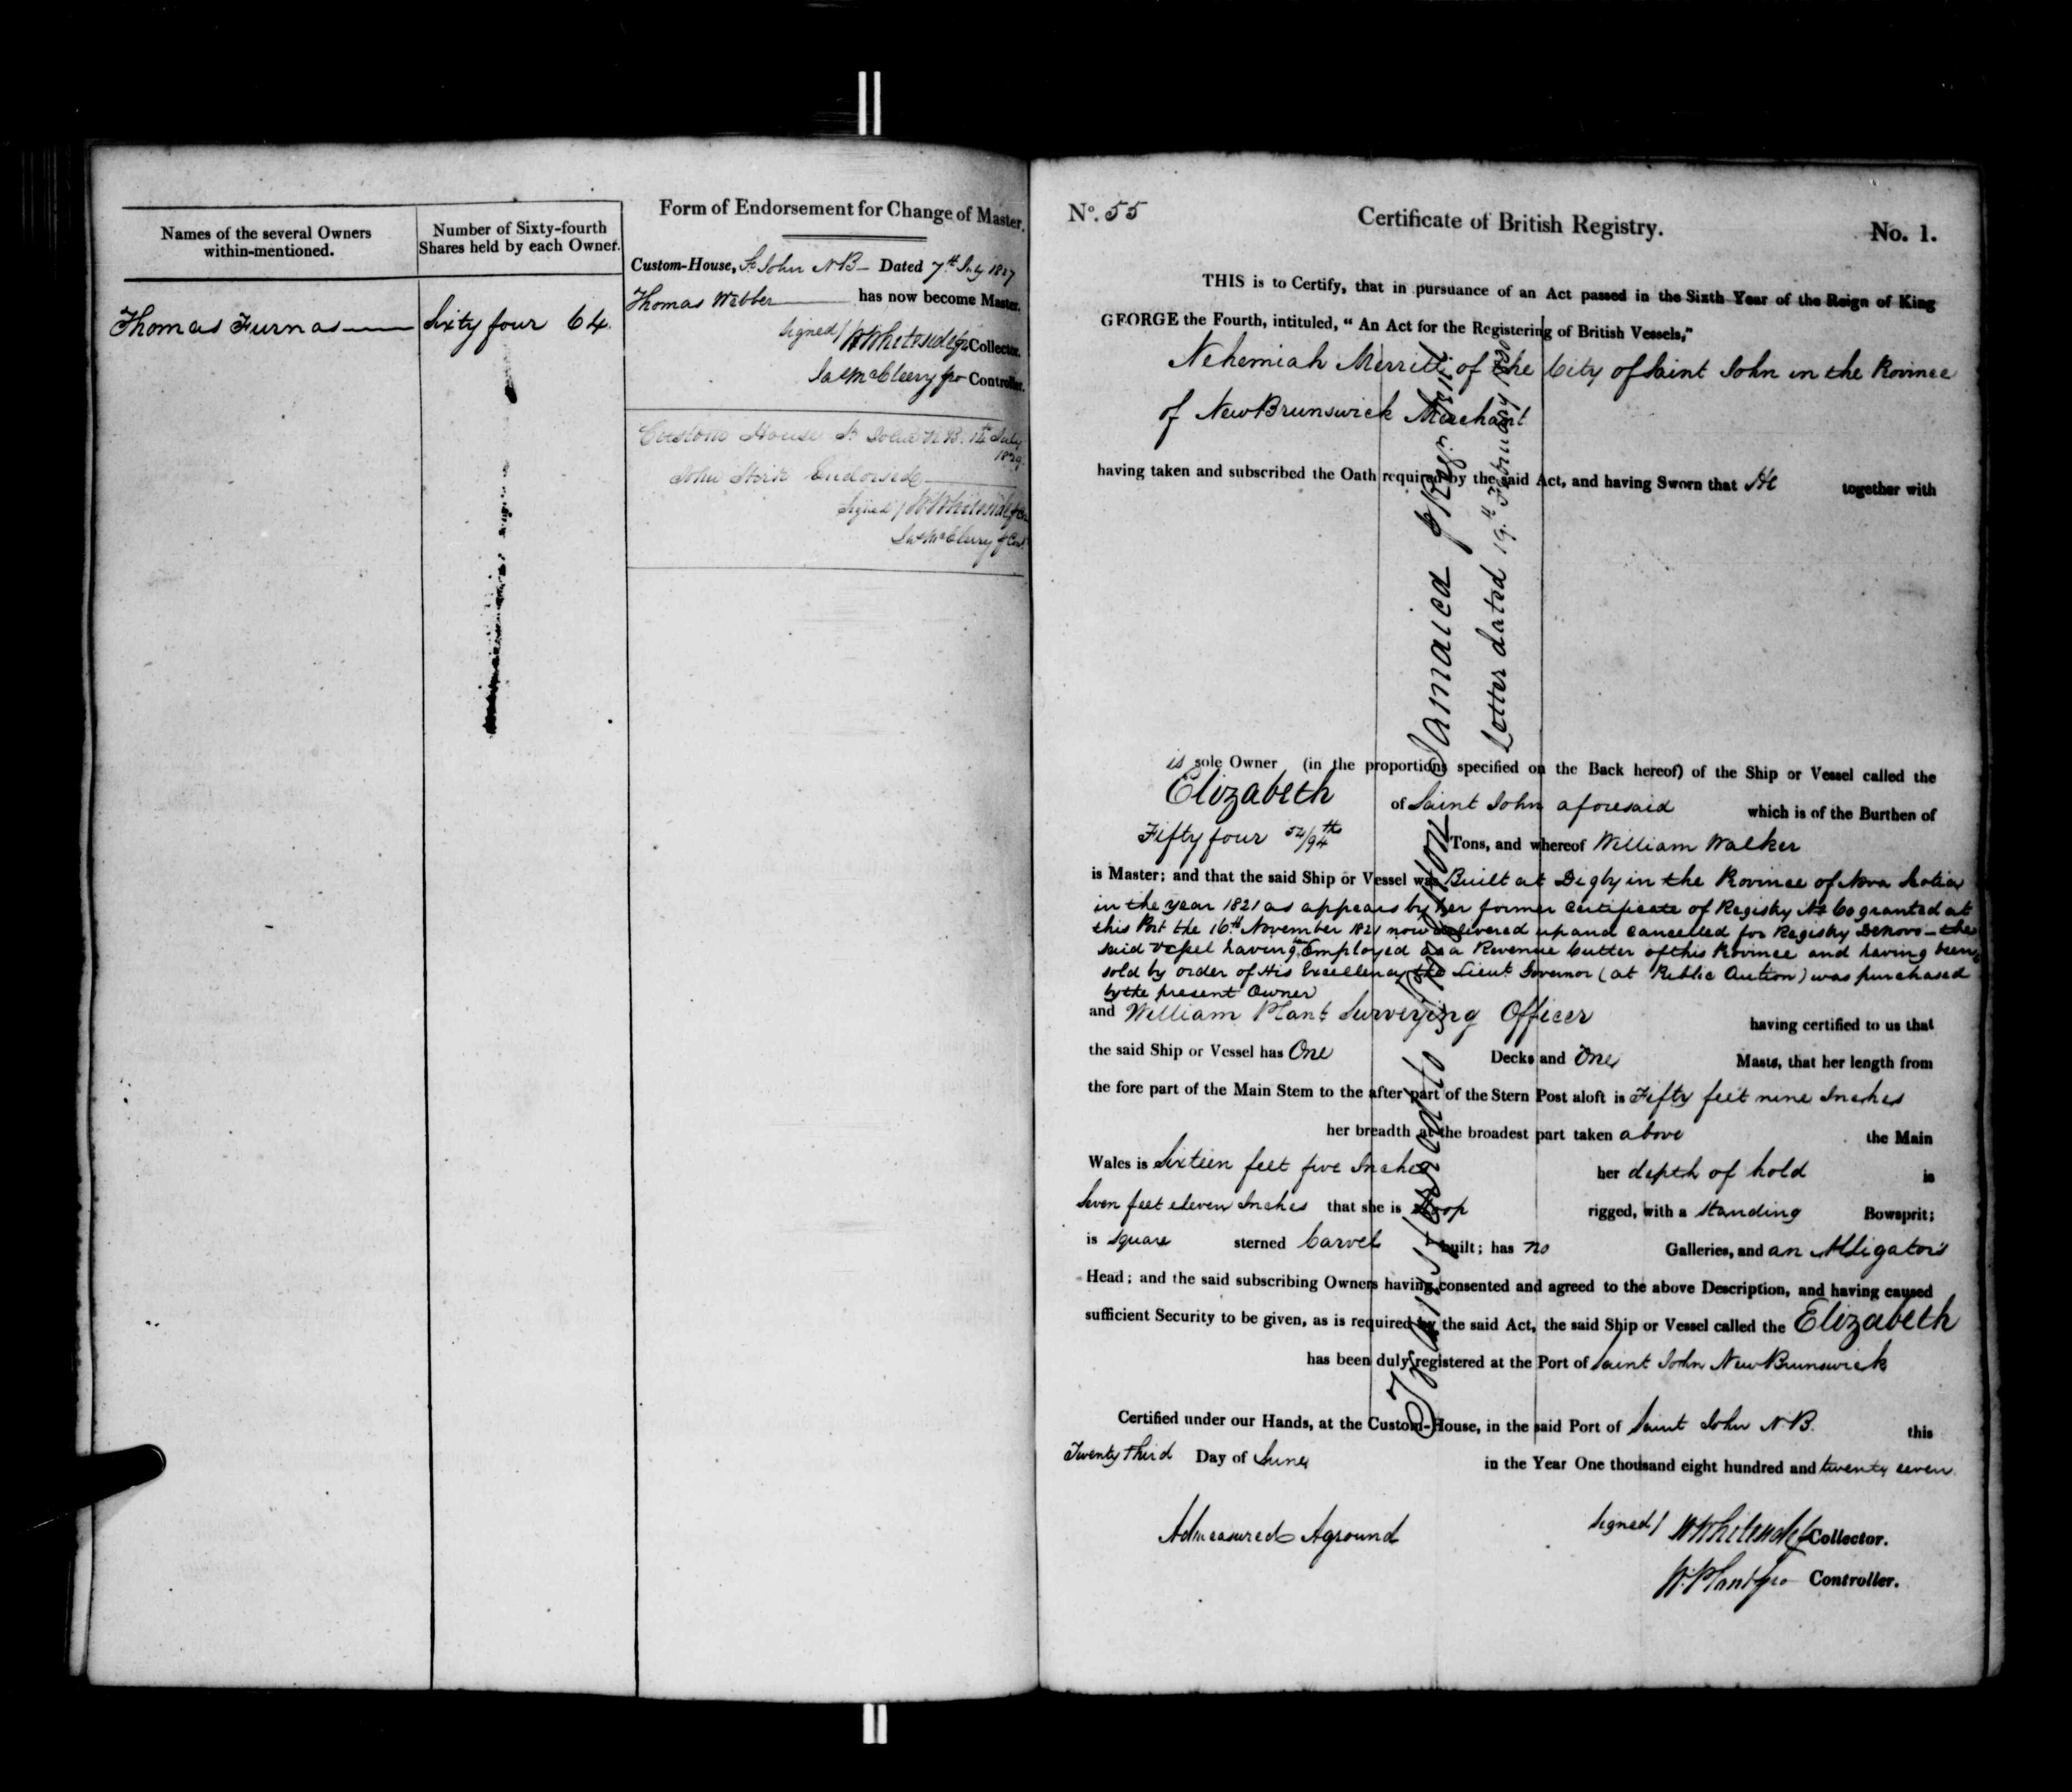 Names of the several Owners
within-mentioned.
Number of Sixty-fourth
Shares held by each Owner.
Thomas Furnas
Sixty four 64.
Form of Endorsement for Change of Master.
Custom-House, St John NB - Dated 7th July 1827
Thomas Webber has now become Master.
Signed / W Whiteside Collector.
Jas McCleery pro Controller.
Custom House St John N.B. 14th July
1829.
John Endorsed
Signed / W Whiteside
Jas McCleery
No. 55
Certificate of British Registry.
No. 1.
THIS is to Certify, that in pursuance of an Act passed in the Sixth Year of the Reign of King
GEORGE the Fourth, intituled, “ An Act for the Registering of British Vessels,”
Nehemiah Merritt of the City of Saint John in the Province
of New Brunswick Merchant
having taken and subscribed the Oath required by the said Act, and having Sworn that He together with
is sole Owner (in the proportions specified on the Back hereof) of the Ship or Vessel called the
Elizabeth of Saint John aforesaid which is of the Burthen of
Fifty four 54/94th Tons, and whereof William Walker
is Master; and that the said Ship or Vessel was Built at Digby in the Province of Nova Scotia
in the year 1821 as appears by her former Certificate of Registry No 60 granted at
this Port the 16th November 1821 now delivered up and cancelled for Registry Denovo - the
said Vessel having been Employed as a Revenue Cutter of this Province and having been
sold by order of His Excellency the Lieut Governor (at Public Auction) was purchased
by the present Owner
and William Plant Surveying Officer having certified to us that
the said Ship or Vessel has One Decks and One Masts, that her length from
the fore part of the Main Stem to the after part of the Stern Post aloft is Fifty feet nine Inches
her breadth at the broadest part taken above the Main
Wales is Sixteen feet five Inches her depth of hold is
Seven feet eleven Inches that she is Sloop rigged, with a standing Bowsprit;
is square sterned Carvel built; has no Galleries, and an Alligators
Head; and the said subscribing Owners having consented and agreed to the above Description, and having caused
sufficient Security to be given, as is required by the said Act, the said Ship or Vessel called the Elizabeth
has been duly registered at the Port of Saint John New Brunswick
Certified under our Hands, at the Custom-House, in the said Port of Saint John NB. this
Twenty third Day of June in the Year One thousand eight hundred and twenty seven
Admeasured Aground
Signed / W Whiteside Collector.
W. Plant pro Controller.
Kingston Jamaica
Letter dated 19th February 1830